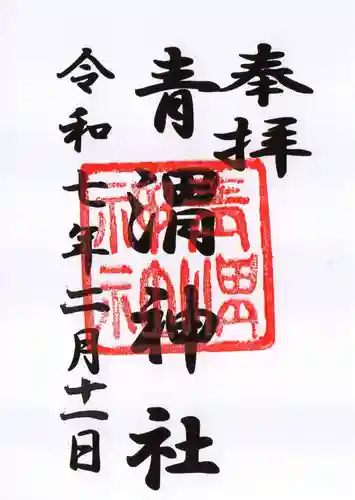 奉拝
青渭神社
令和七年二月十一日
青渭
神社